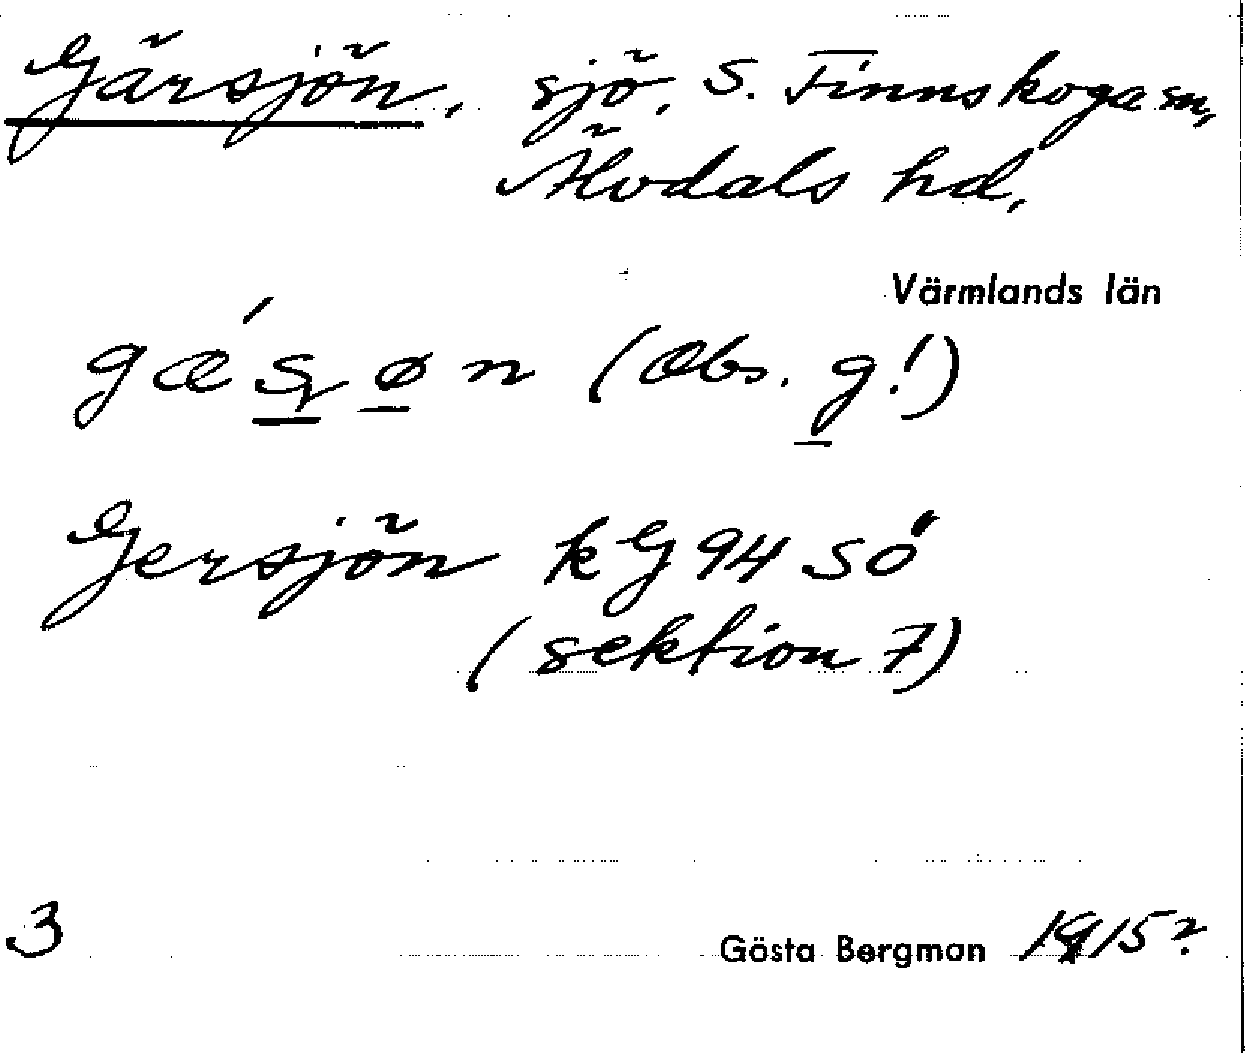 Gärsjön, sjö, S. Finnskoga sn,
Älvdals hd,
Värmlands län
gǽʂøn (Obs. g!)
Gersjön kG94 sö
(sektion 7)
3 Gösta Bergman 1915?